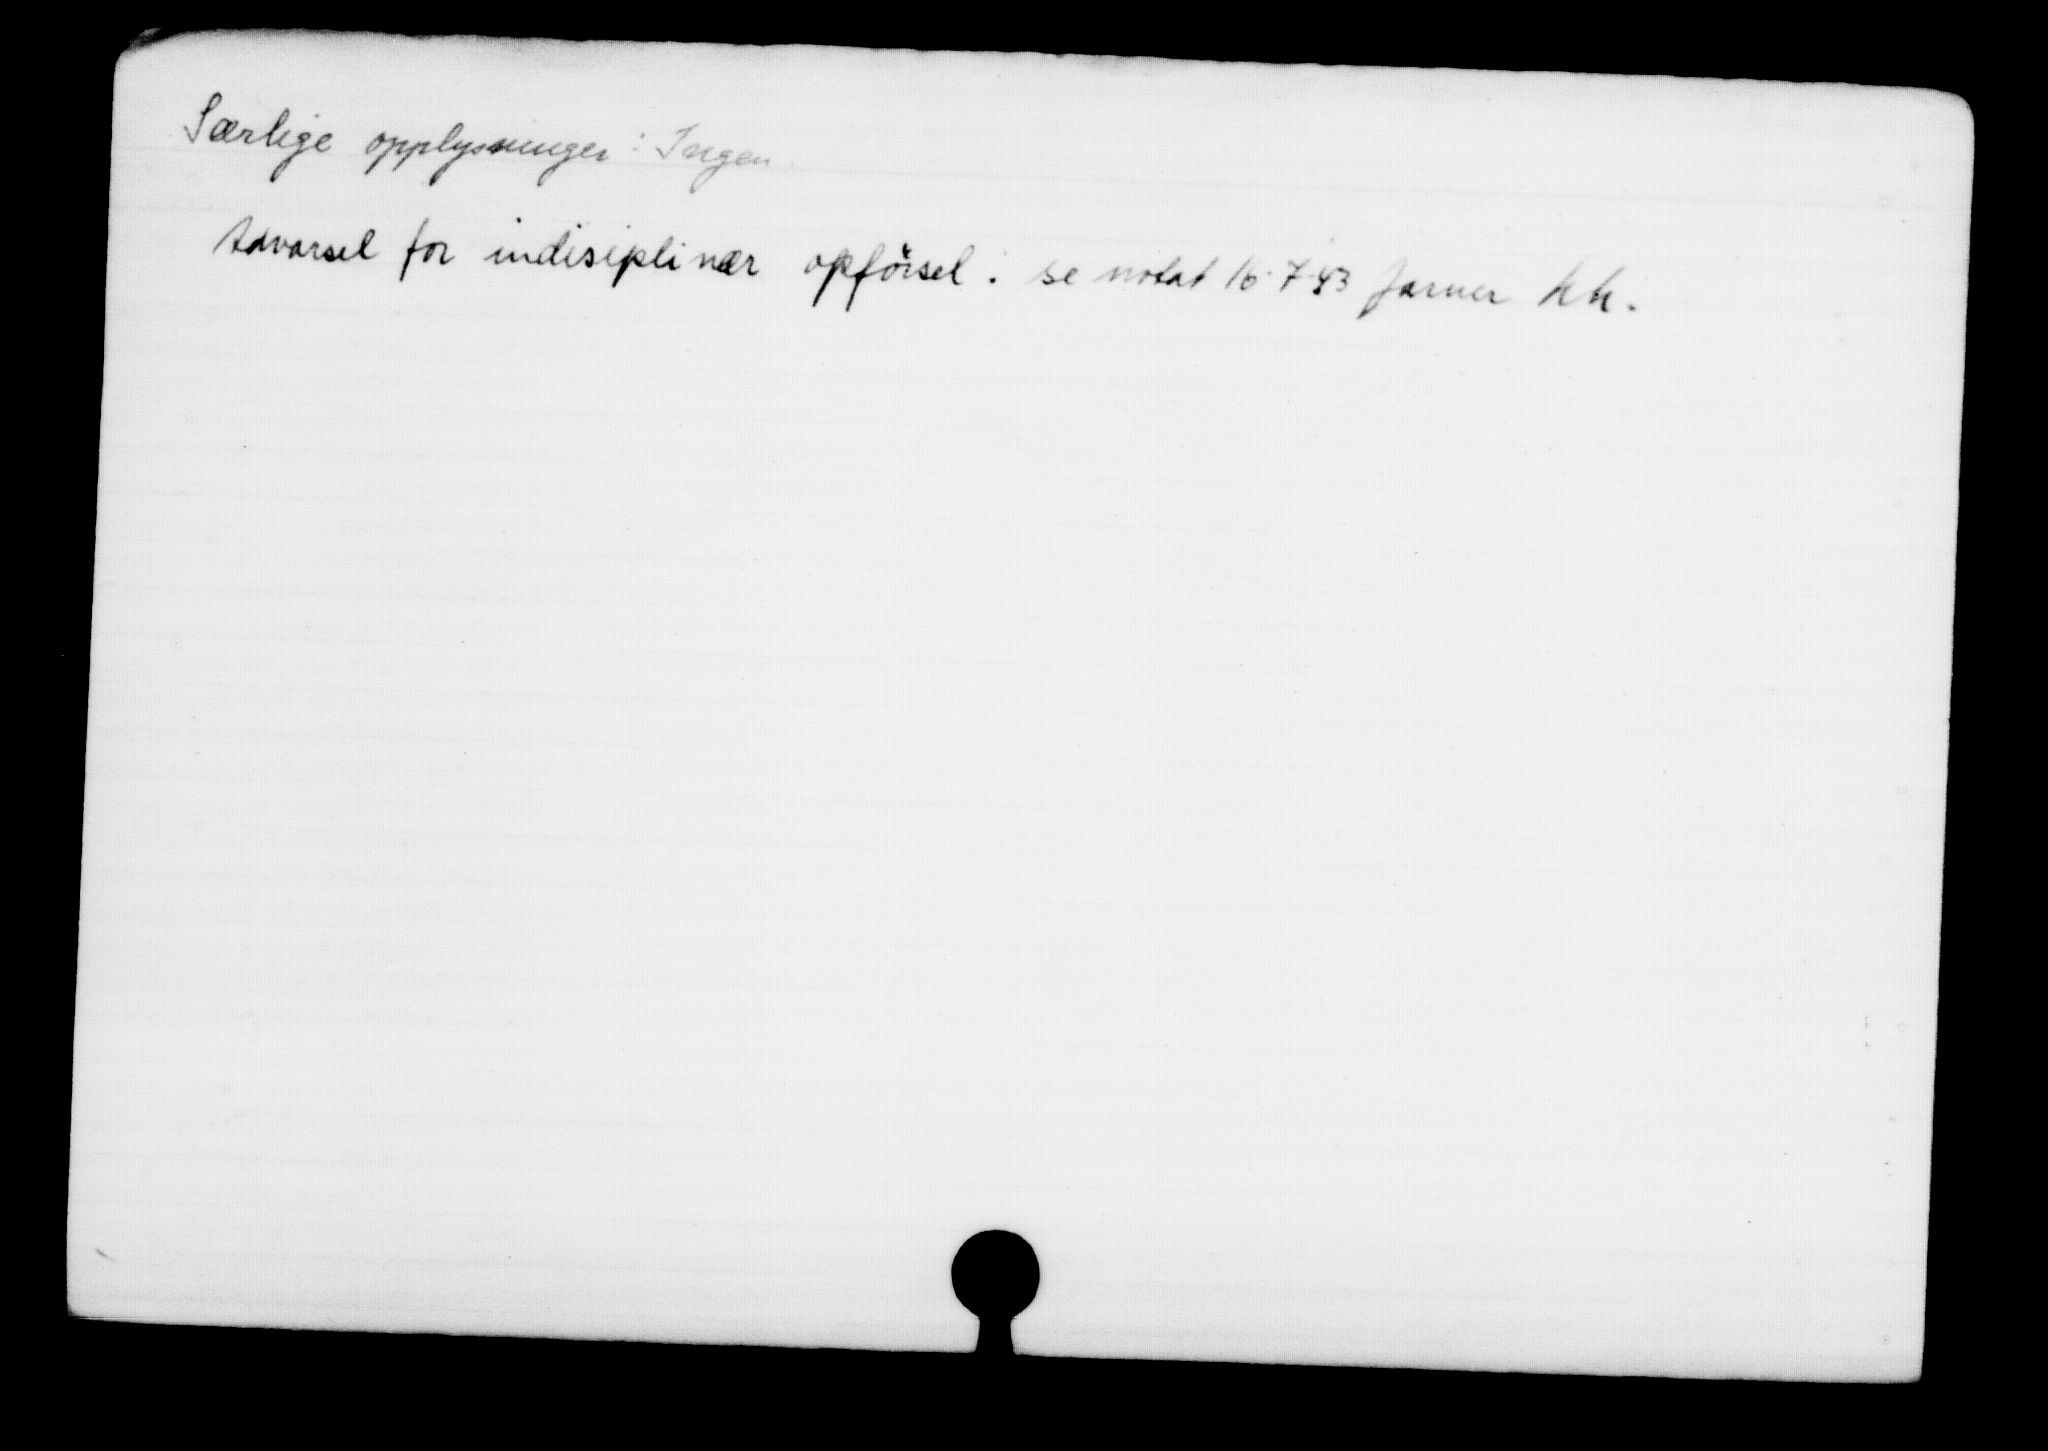 Særlige opplysninger: Ingen.
Advarsel for indisiplinær opförsel. se notat 16-7-43